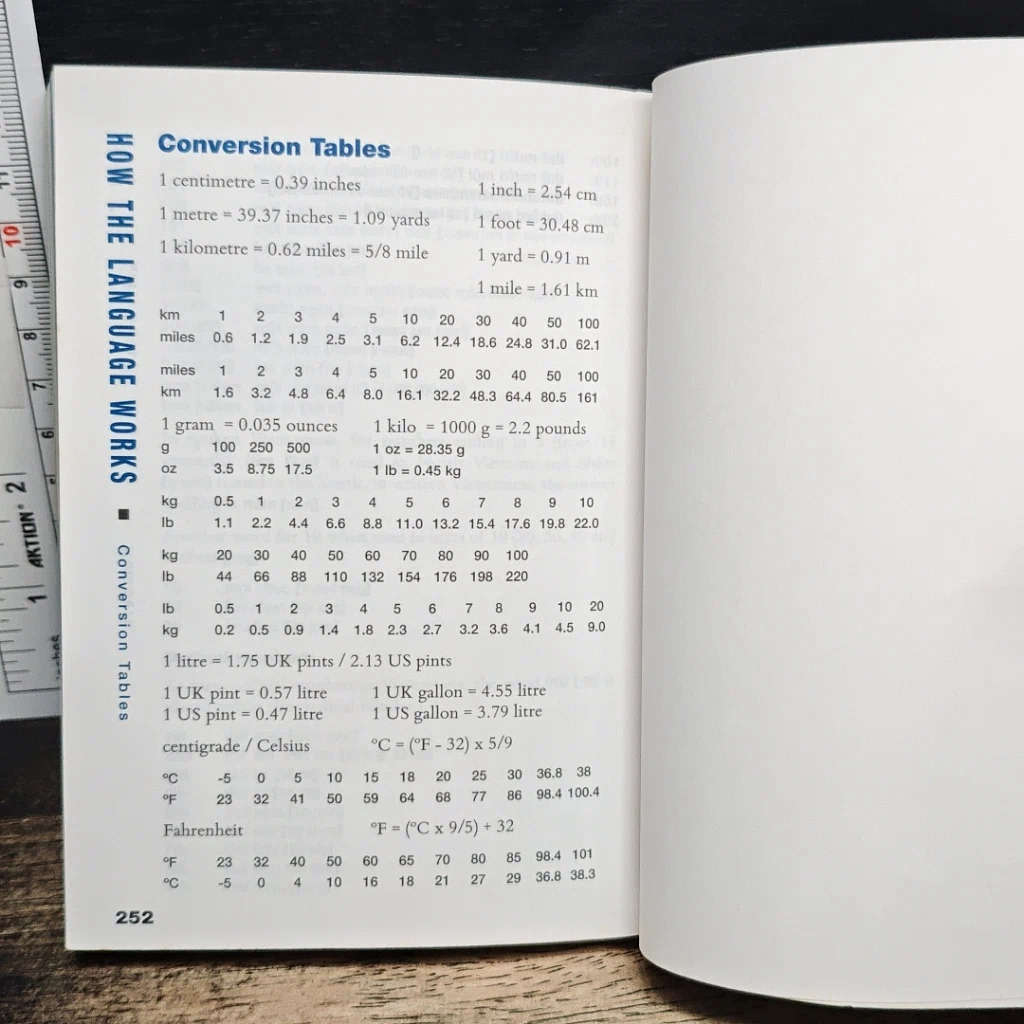 HOW THE LANGUAGE WORKS ■ Conversion Tables
Conversion Tables
1 centimetre = 0.39 inches 1 inch = 2.54 cm
1 metre = 39.37 inches = 1.09 yards 1 foot = 30.48 cm
1 kilometre = 0.62 miles = 5/8 mile 1 yard = 0.91 m
1 mile = 1.61 km
km 1 2 3 4 5 10 20 30 40 50 100
miles 0.6 1.2 1.9 2.5 3.1 6.2 12.4 18.6 24.8 31.0 62.1
miles 1 2 3 4 5 10 20 30 40 50 100
km 1.6 3.2 4.8 6.4 8.0 16.1 32.2 48.3 64.4 80.5 161
1 gram = 0.035 ounces 1 kilo = 1000 g = 2.2 pounds
g 100 250 500 1 oz = 28.35 g
oz 3.5 8.75 17.5 1 lb = 0.45 kg
kg 0.5 1 2 3 4 5 6 7 8 9 10
lb 1.1 2.2 4.4 6.6 8.8 11.0 13.2 15.4 17.6 19.8 22.0
kg 20 30 40 50 60 70 80 90 100
lb 44 66 88 110 132 154 176 198 220
lb 0.5 1 2 3 4 5 6 7 8 9 10 20
kg 0.2 0.5 0.9 1.4 1.8 2.3 2.7 3.2 3.6 4.1 4.5 9.0
1 litre = 1.75 UK pints / 2.13 US pints
1 UK pint = 0.57 litre 1 UK gallon = 4.55 litre
1 US pint = 0.47 litre 1 US gallon = 3.79 litre
centigrade / Celsius ºC = (ºF - 32) x 5/9
ºC -5 0 5 10 15 18 20 25 30 36.8 38
ºF 23 32 41 50 59 64 68 77 86 98.4 100.4
Fahrenheit ºF = (ºC x 9/5) + 32
ºF 23 32 40 50 60 65 70 80 85 98.4 101
ºC -5 0 4 10 16 18 21 27 29 36.8 38.3
252
11
10
9
8
7
6
5
2
AKTION
1